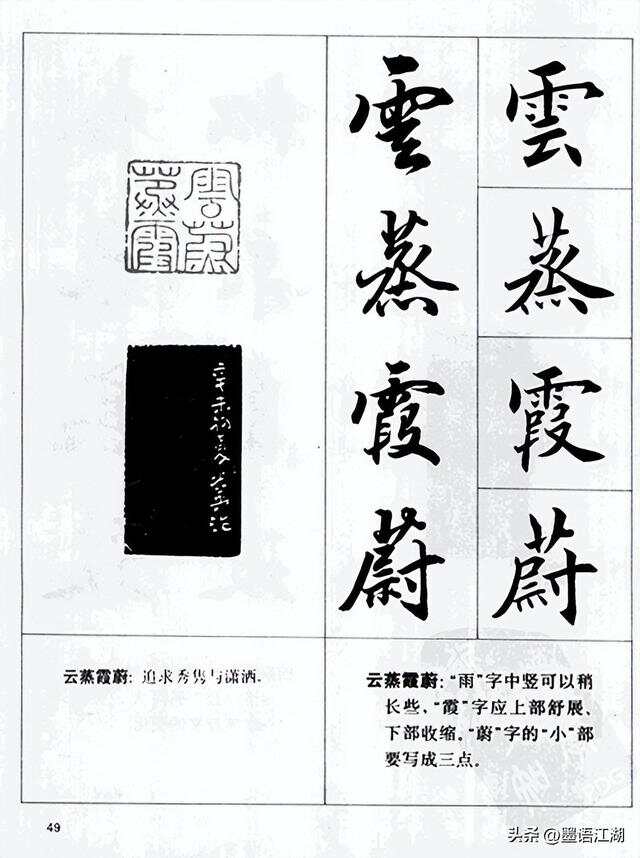 雲蒸霞蔚
辛未初夏
雲
蒸
霞
蔚
雲
蒸
霞
蔚
云蒸霞蔚: 追求秀隽与潇洒.
云蒸霞蔚: “雨”字中竖可以稍
长些, “霞”字应上部舒展、
下部收缩。“蔚”字的“小”部
要写成三点。
49
头条 @墨语江湖